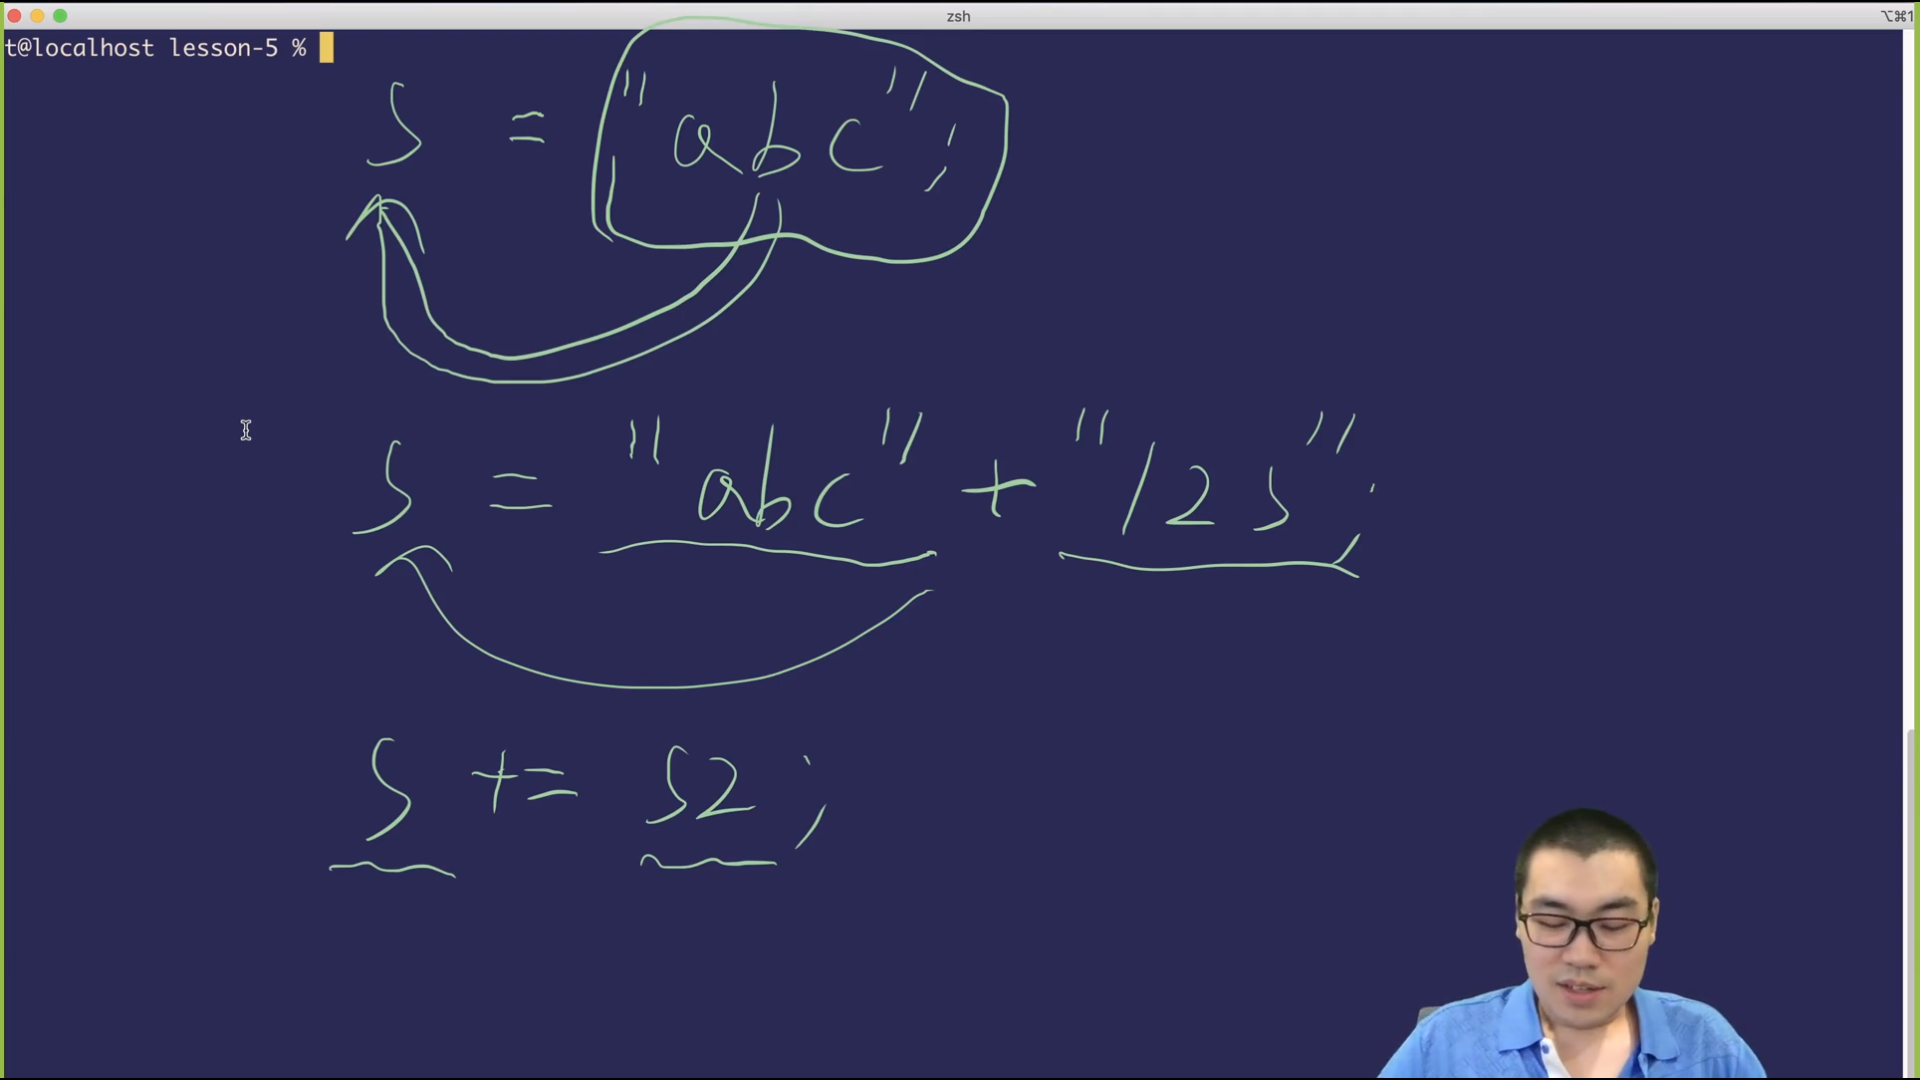 zsh
⌥⌘1
t@localhost lesson-5 %
s = "abc";
s = "abc" + "123";
s += s2;